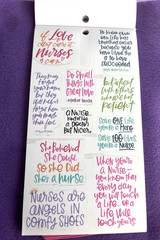 if Love
could cure
Nurses
To know even
one life has
breathed easier
because you
have lived
is to have
succeeded
They may
forget
your name
but they
will never
forget
how you
made
them feel
Do Small
things with
Great Love
but patient
with the
patient
A Nurse
like a Doctor
But Nicer
Save ONE Life
You're a Hero
Save 100 Lives
You're a Nurse
She Believed
She Could
so she Did
she's a nurse
Nurses are
angels in
comfy shoes
When you're
a Nurse
you know that
every day
you will
touch a
life or a
life will
touch yours